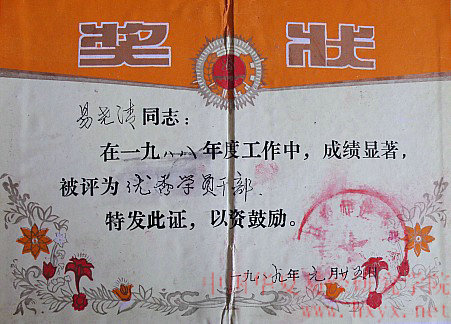 奖状
易尧清同志：
在一九八八年度工作中，成绩显著，
被评为优秀学员干部
特发此证，以资鼓励。
一九八九年元月廿五日
www.hxyx.net